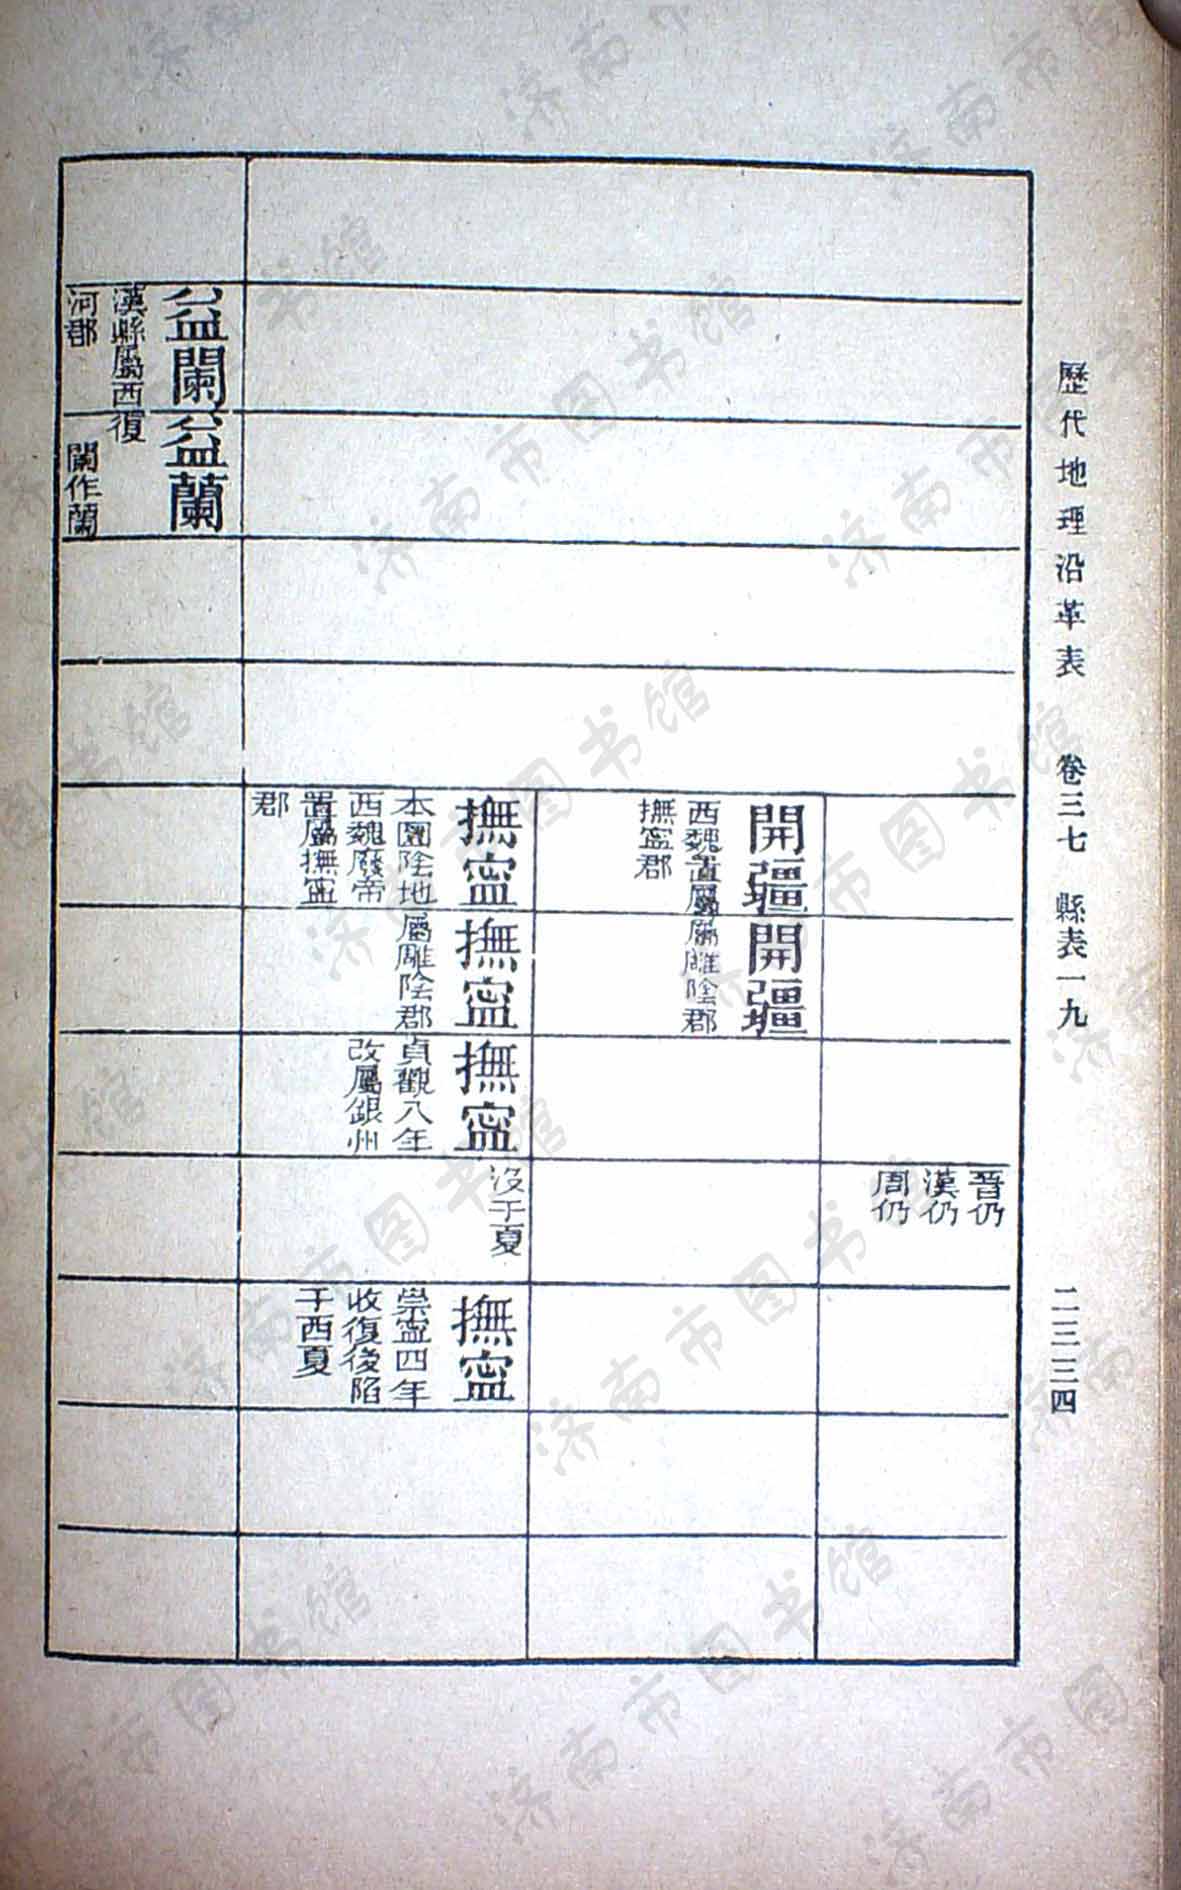 歷代地理沿革表 卷三七 縣表一九 二三三四
晉仍
漢仍
周仍
開疆
西魏置屬
撫寧郡
開疆
屬雕陰郡
撫寧
本圁陰地
西魏廢帝
置屬撫寧
郡
撫寧
屬雕陰郡
撫寧
貞觀八年
改屬銀州
沒于夏
撫寧
崇寧四年
收復後陷
于西夏
益闌
漢縣屬西
河郡
益蘭
復
闌作蘭
济南市图书馆